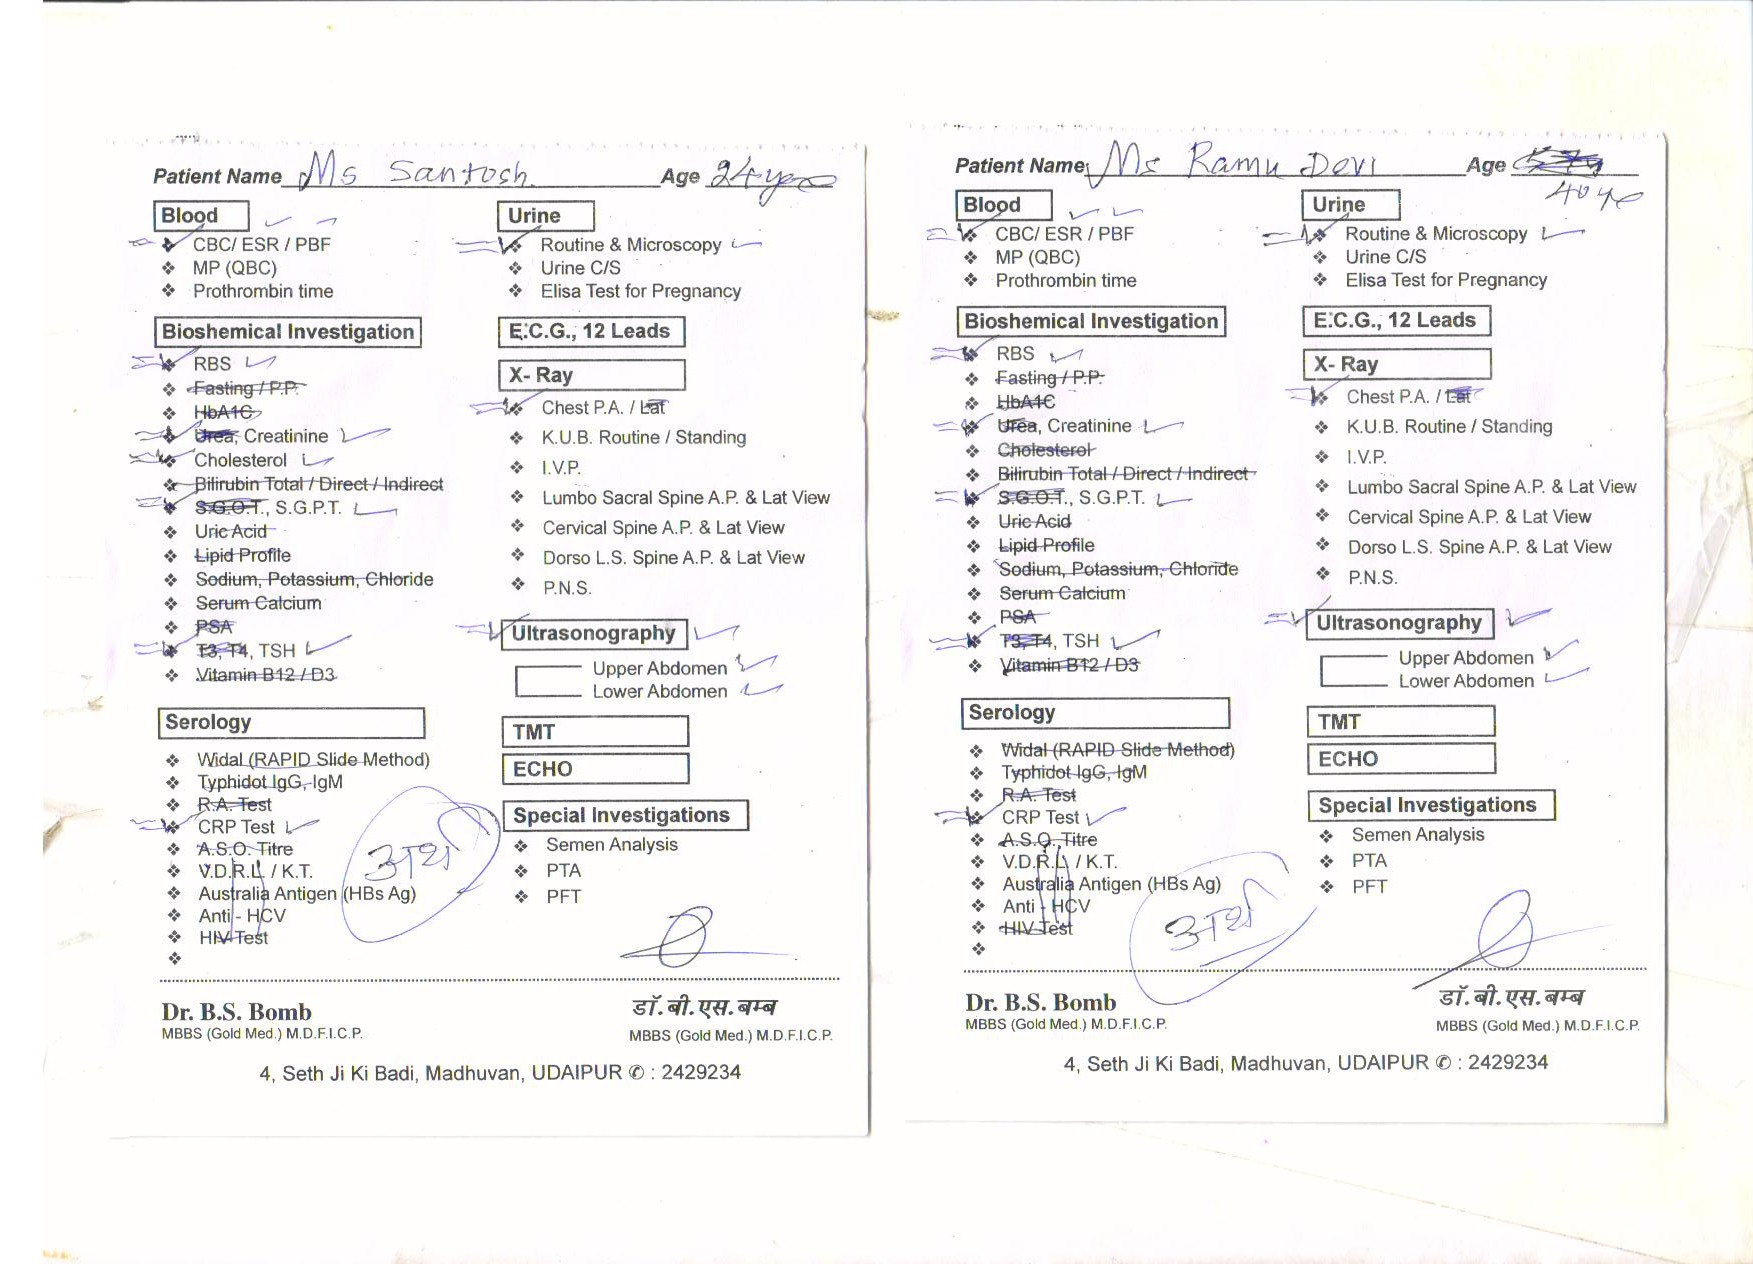 Patient Name Ms Santosh Age 24 yrs
Blood
CBC/ ESR / PBF
MP (QBC)
Prothrombin time
Bioshemical Investigation
RBS
Fasting / P.P.
HbA1C
Urea, Creatinine
Cholesterol
Bilirubin Total / Direct / Indirect
S.G.O.T., S.G.P.T.
Uric Acid
Lipid Profile
Sodium, Potassium, Chloride
Serum Calcium
PSA
T3, T4, TSH
Vitamin B12 / D3
Serology
Widal (RAPID Slide Method)
Typhidot IgG, IgM
R.A. Test
CRP Test
A.S.O. Titre
V.D.R.L. / K.T.
Australia Antigen (HBs Ag)
Anti - HCV
HIV Test
Urine
Routine & Microscopy
Urine C/S
Elisa Test for Pregnancy
E.C.G., 12 Leads
X- Ray
Chest P.A. / Lat
K.U.B. Routine / Standing
I.V.P.
Lumbo Sacral Spine A.P. & Lat View
Cervical Spine A.P. & Lat View
Dorso L.S. Spine A.P. & Lat View
P.N.S.
Ultrasonography
Upper Abdomen
Lower Abdomen
TMT
ECHO
Special Investigations
Semen Analysis
PTA
PFT
अर्थ
Dr. B.S. Bomb
MBBS (Gold Med.) M.D.F.I.C.P.
डॉ. बी. एस. बम्ब
MBBS (Gold Med.) M.D.F.I.C.P.
4, Seth Ji Ki Badi, Madhuvan, UDAIPUR ✆ : 2429234
Patient Name Ms Ramu Devi Age
40 yr
Blood
CBC/ ESR / PBF
MP (QBC)
Prothrombin time
Bioshemical Investigation
RBS
Fasting / P.P.
HbA1C
Urea, Creatinine
Cholesterol
Bilirubin Total / Direct / Indirect
S.G.O.T., S.G.P.T.
Uric Acid
Lipid Profile
Sodium, Potassium, Chloride
Serum Calcium
PSA
T3, T4, TSH
Vitamin B12 / D3
Serology
Widal (RAPID Slide Method)
Typhidot IgG, IgM
R.A. Test
CRP Test
A.S.O. Titre
V.D.R.L. / K.T.
Australia Antigen (HBs Ag)
Anti - HCV
HIV Test
Urine
Routine & Microscopy
Urine C/S
Elisa Test for Pregnancy
E.C.G., 12 Leads
X- Ray
Chest P.A. / Lat
K.U.B. Routine / Standing
I.V.P.
Lumbo Sacral Spine A.P. & Lat View
Cervical Spine A.P. & Lat View
Dorso L.S. Spine A.P. & Lat View
P.N.S.
Ultrasonography
Upper Abdomen
Lower Abdomen
TMT
ECHO
Special Investigations
Semen Analysis
PTA
PFT
अर्थ
Dr. B.S. Bomb
MBBS (Gold Med.) M.D.F.I.C.P.
डॉ. बी. एस. बम्ब
MBBS (Gold Med.) M.D.F.I.C.P.
4, Seth Ji Ki Badi, Madhuvan, UDAIPUR ✆ : 2429234